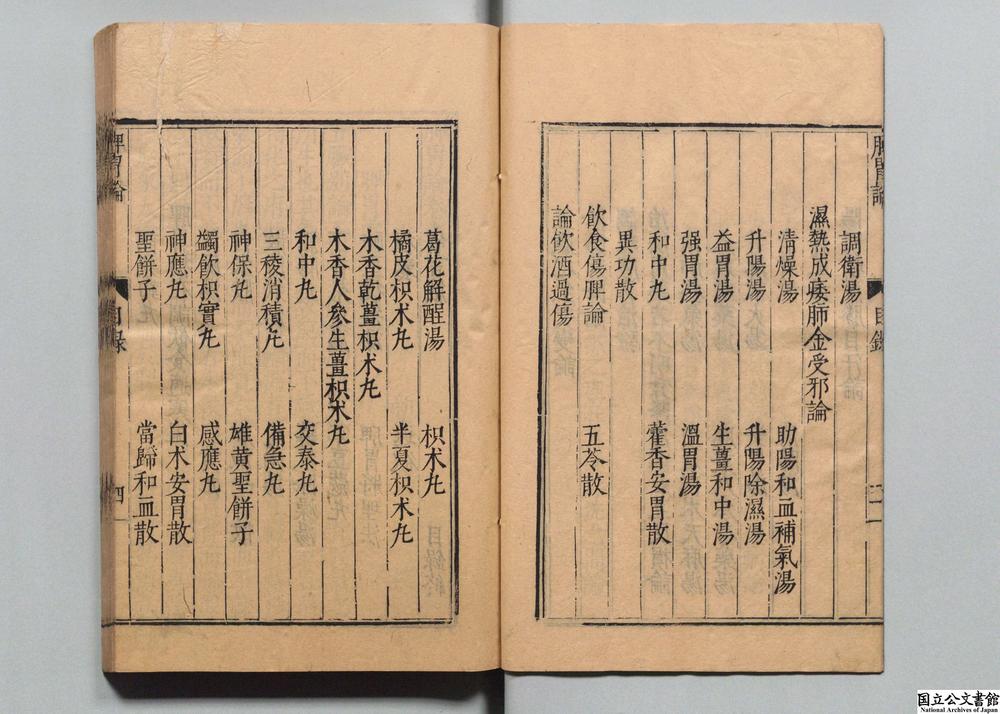 脾胃論 目錄
調衛湯
濕熱成痿肺金受邪論
清燥湯 助陽和血補氣湯
升陽湯 升陽除濕湯
益胃湯 生薑和中湯
强胃湯 溫胃湯
和中丸 藿香安胃散
異功散
飲食傷脾論 五苓散
論飲酒過傷
葛花解酲湯 枳朮丸
橘皮枳朮丸 半夏枳朮丸
木香乾薑枳朮丸
木香人參生薑枳朮丸
和中丸 交泰丸
三稜消積丸 備急丸
神保丸 雄黃聖餅子
蠲飲枳實丸 感應丸
神應丸 白朮安胃散
聖餅子 當歸和血散
脾胃論 目錄 四
国立公文書館
National Archives of Japan